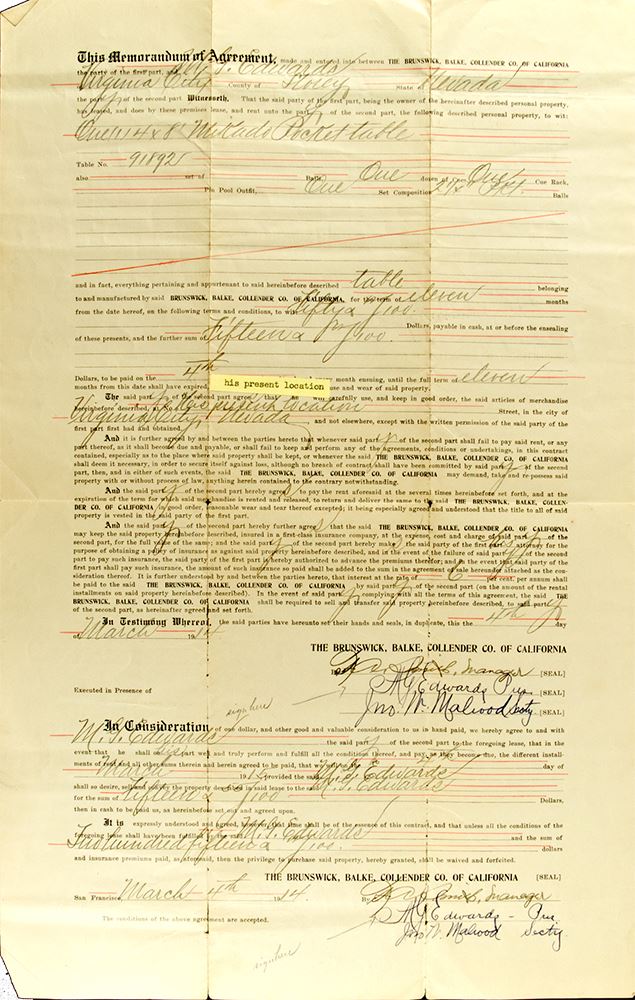 This Memorandum of Agreement, made and entered into between THE BRUNSWICK, BALKE, COLLENDER CO. OF CALIFORNIA
the party of the first part, and M. G. Edwards
Virginia City County of Storey State of Nevada
the party of the second part Witnesseth, That the said party of the first part, being the owner of the hereinafter described personal property,
has leased, and does by these premises lease, and rent unto the party of the second part, the following described personal property, to wit:
One 4 x 8 Mikado Pocket table
Table No. 91892
also set of Balls, One dozen of One Cue Rack,
Pin Pool Outfit, One Set Composition 2 1/4 Balls
and in fact, everything pertaining and appurtenant to said hereinbefore described table belonging
to and manufactured by said BRUNSWICK, BALKE, COLLENDER CO. OF CALIFORNIA, for the term of eleven months
from the date hereof, on the following terms and conditions, to wit: Fifty & /100
Dollars, payable in cash, at or before the ensealing
of these presents, and the further sum of Fifteen & /100
Dollars, to be paid on the 4th month ensuing, until the full term of eleven
his present location
months from this date shall have expired, use and wear of said property.
The said party of the second part agree that he will carefully use, and keep in good order, the said articles of merchandise
hereinbefore described, at No. his present location Street, in the city of
Virginia City, Nevada and not elsewhere, except with the written permission of the said party of the
first part first had and obtained.
And it is further agreed by and between the parties hereto that whenever said party of the second part shall fail to pay said rent, or any
part thereof, as it shall become due and payable, or shall fail to keep and perform any of the agreements, conditions or undertakings, in this contract
contained, especially as to the place where said property shall be kept, or whenever the said THE BRUNSWICK, BALKE, COLLENDER CO. OF CALIFORNIA
shall deem it necessary, in order to secure itself against loss, although no breach of contract shall have been committed by said party of the second
part, then, and in either of such events, the said THE BRUNSWICK, BALKE, COLLENDER CO. OF CALIFORNIA may demand, take and re-possess said
property with or without process of law, anything herein contained to the contrary notwithstanding.
And the said party of the second part hereby agrees to pay the rent aforesaid at the several times hereinbefore set forth, and at the
expiration of the term for which said merchandise is rented and released, to return and deliver the same to the said THE BRUNSWICK, BALKE, COLLEN-
DER CO. OF CALIFORNIA in good order, reasonable wear and tear thereof excepted; it being especially agreed and understood that the title to all of said
property is vested in the said party of the first part.
And the said party of the second part hereby further agrees that the said THE BRUNSWICK, BALKE, COLLENDER CO. OF CALIFORNIA
may keep the said property hereinbefore described, insured in a first-class insurance company, at the expense, cost and charge of said party of the
second part, for the full value of the same; and the said party of the second part hereby make the said party of the first part attorney for the
purpose of obtaining a policy of insurance as against said property hereinbefore described, and in the event of the failure of said party of the second
part to pay such insurance, the said party of the first part hereby authorized to advance the premiums therefor; and in the event that said party of the
first part shall pay such insurance, the amount of such insurance so paid shall be added to the sum in the agreement of sale hereunder attached as the con-
sideration thereof. It is further understood by and between the parties hereto, that interest at the rate of 6 per cent. per annum shall
be paid to the said THE BRUNSWICK, BALKE, COLLENDER CO. OF CALIFORNIA by said party of the second part (on the amount of the rental
installments on said property hereinbefore described). In the event of said party complying with all the terms of this agreement, the said THE
BRUNSWICK, BALKE, COLLENDER CO. OF CALIFORNIA shall be required to sell and transfer said property hereinbefore described, to said party
of the second part, as hereinafter agreed and set forth.
In Testimony Whereof, the said parties have hereunto set their hands and seals, in duplicate, this the 4th day
of March 1914
THE BRUNSWICK, BALKE, COLLENDER CO. OF CALIFORNIA
By Manager [SEAL]
A. G. Edwards Pres [SEAL]
Jno. W. Malwood Secty [SEAL]
Executed in Presence of
sign here
In Consideration of one dollar, and other good and valuable consideration to us in hand paid, we hereby agree to and with
M. G. Edwards the said party of the second part to the foregoing lease, that in the
event that he shall well and truly perform and fulfill all the conditions thereof, and pay, as they become due, the different install-
ments of rent and all other sums therein and herein agreed to be paid, that we will on the day of
March 19 provided the said M. G. Edwards
shall so desire, sell and convey the property described in said lease to the said M. G. Edwards
for the sum of Fifteen & /100 Dollars,
then in cash to be paid us, as hereinbefore set out and agreed upon.
It is expressly understood and agreed, however, that time shall be of the essence of this contract, and that unless all the conditions of the
foregoing lease shall have been fulfilled by the said M. G. Edwards and the sum of
Two hundred fifteen & /100 dollars
and insurance premiums paid, as aforesaid, then the privilege to purchase said property, hereby granted, shall be waived and forfeited.
THE BRUNSWICK, BALKE, COLLENDER CO. OF CALIFORNIA [SEAL]
San Francisco, March 4th 1914. By Manager
A. G. Edwards - Pres
Jno W. Malwood Secty
The conditions of the above agreement are accepted.
sign here